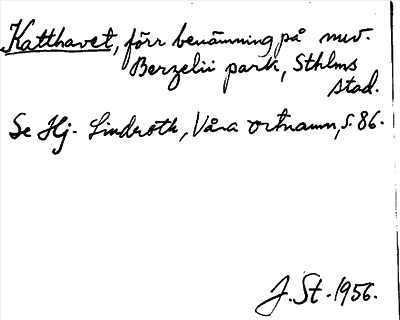 Katthavet, förr benämning på nuv.
Berzelii park, Sthlms
stad.
Se Hj. Lindroth, Våra ortnamn, s. 86.
J. St. 1956.